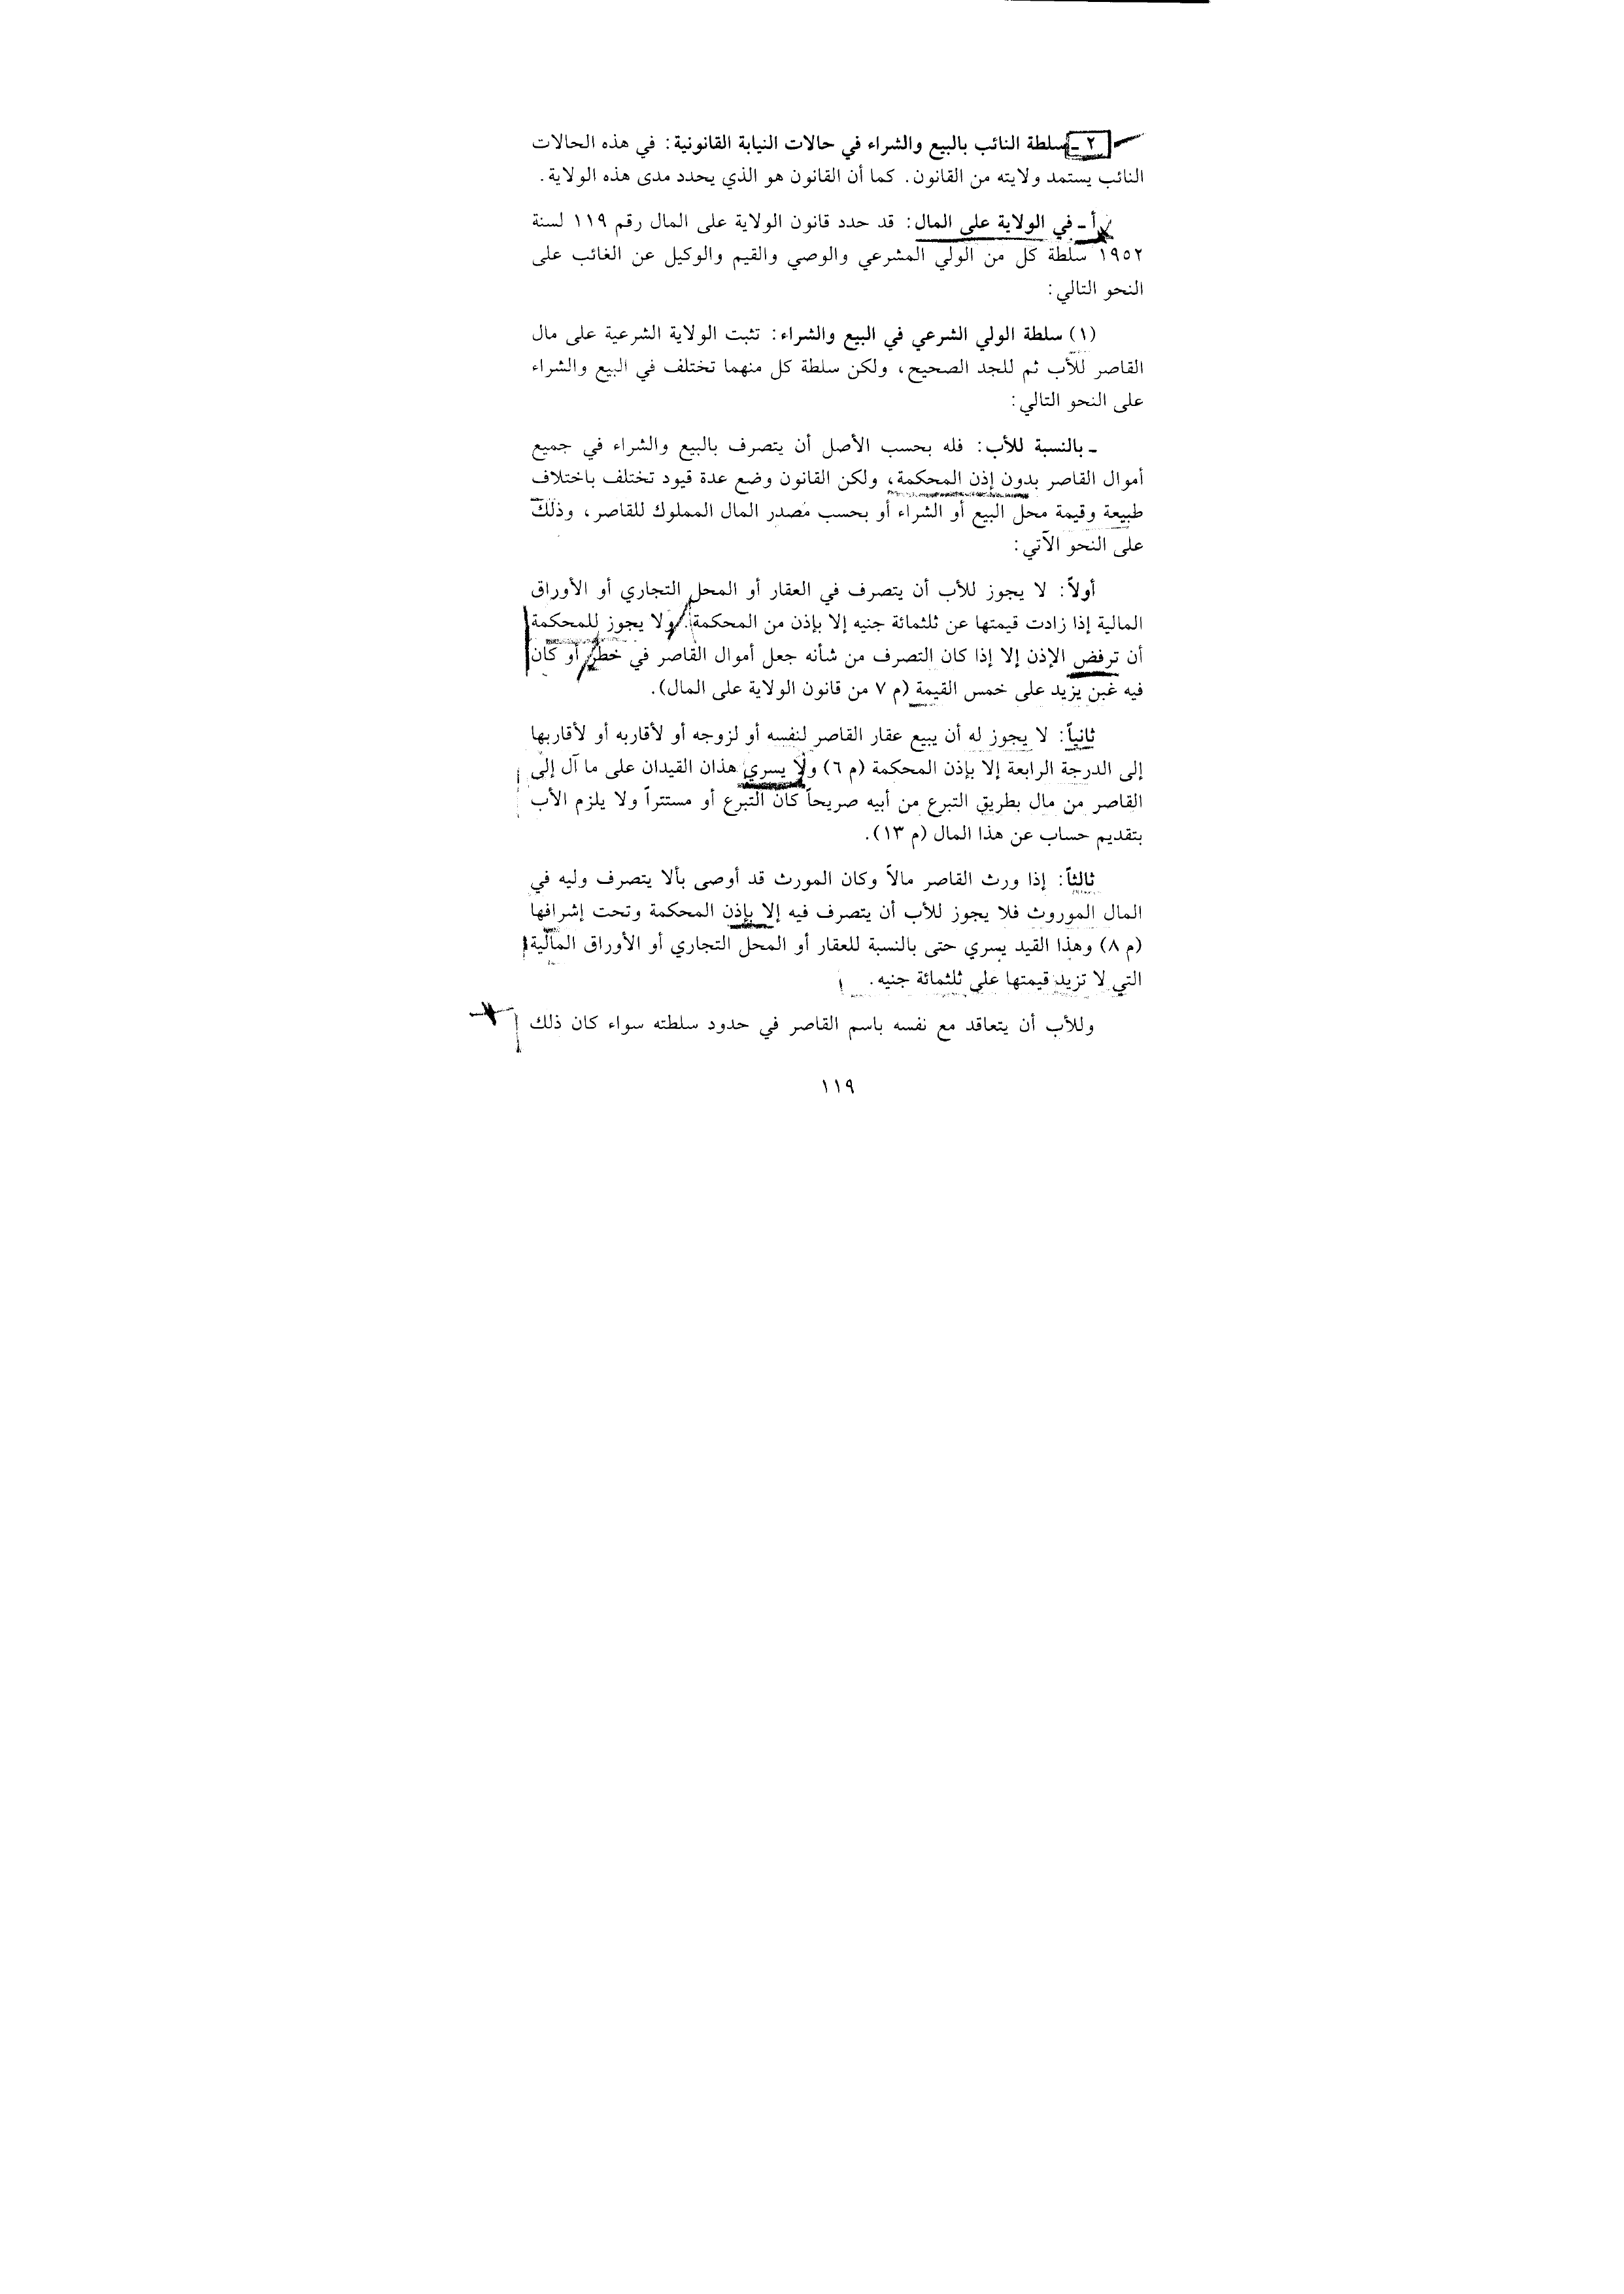 ٢ ـ سلطة النائب بالبيع والشراء في حالات النيابة القانونية: في هذه الحالات
النائب يستمد ولايته من القانون. كما أن القانون هو الذي يحدد مدى هذه الولاية.
أ ـ في الولاية على المال: قد حدد قانون الولاية على المال رقم ١١٩ لسنة
١٩٥٢ سلطة كل من الولي المشرعي والوصي والقيم والوكيل عن الغائب على
النحو التالي:
(١) سلطة الولي الشرعي في البيع والشراء: تثبت الولاية الشرعية على مال
القاصر للأب ثم للجد الصحيح، ولكن سلطة كل منهما تختلف في البيع والشراء
على النحو التالي:
ـ بالنسبة للأب: فله بحسب الأصل أن يتصرف بالبيع والشراء في جميع
أموال القاصر بدون إذن المحكمة، ولكن القانون وضع عدة قيود تختلف باختلاف
طبيعة وقيمة محل البيع أو الشراء أو بحسب مصدر المال المملوك للقاصر، وذلك
على النحو الآتي:
أولاً: لا يجوز للأب أن يتصرف في العقار أو المحل التجاري أو الأوراق
المالية إذا زادت قيمتها عن ثلثمائة جنيه إلا بإذن من المحكمة. ولا يجوز للمحكمة
أن ترفض الإذن إلا إذا كان التصرف من شأنه جعل أموال القاصر في خطر أو كان
فيه غبن يزيد على خمس القيمة (م ٧ من قانون الولاية على المال).
ثانياً: لا يجوز له أن يبيع عقار القاصر لنفسه أو لزوجه أو لأقاربه أو لأقاربها
إلى الدرجة الرابعة إلا بإذن المحكمة (م ٦) ولا يسري هذان القيدان على ما آل إلى
القاصر من مال بطريق التبرع من أبيه صريحاً كان التبرع أو مستتراً ولا يلزم الأب
بتقديم حساب عن هذا المال (م ١٣).
ثالثاً: إذا ورث القاصر مالاً وكان المورث قد أوصى بألا يتصرف وليه في
المال الموروث فلا يجوز للأب أن يتصرف فيه إلا بإذن المحكمة وتحت إشرافها
(م ٨) وهذا القيد يسري حتى بالنسبة للعقار أو المحل التجاري أو الأوراق المالية
التي لا تزيد قيمتها على ثلثمائة جنيه.
وللأب أن يتعاقد مع نفسه باسم القاصر في حدود سلطته سواء كان ذلك
١١٩